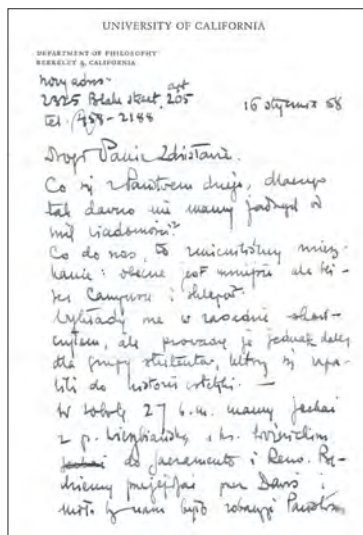 UNIVERSITY OF CALIFORNIA
DEPARTMENT OF PHILOSOPHY
BERKELEY 4, CALIFORNIA
nowy adres-
2325 Blake street, apt 205
tel. 458-2188
16 stycznia 58
Drogi Panie Zdzisławie.
Co się z Państwem dzieje, dlaczego
tak dawno nie mamy żadnych od
nich wiadomości?
Co do nas, to zmieniliśmy miesz-
kanie: obecne jest mniejsze ale bli-
żej Campusu i sklepów.
Wykłady me w zasadzie skoń-
czyłem, ale prowadzę je jednak dalej
dla grupy studentów, którzy się upa-
lili do historii estetyki. —
W sobotę 27 b.m. mamy jechać
z p. i ks.
do Sacramento i Reno. Bę-
dziemy przejeżdżać przez Davis i
miło by nam było zobaczyć Państwa